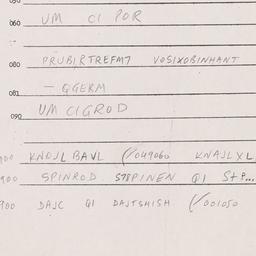 060 UM CI POR
080 PRUBIRTREFM7 VOSIXOBINHANT
081 - GGERM
090 UM CIGROD
900 KNOJL BAVL (/049060 KNAJLXL
900 SPINROD S78PINEN QI
900 DAJC QI DAJTSHISH (/001050